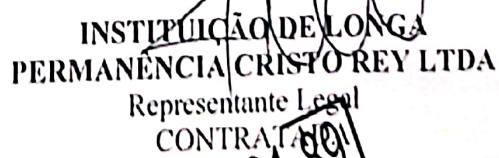 INSTITUIÇÃO DE LONGA
PERMANÊNCIA CRISTO REY LTDA
Representante Legal
CONTRATADO